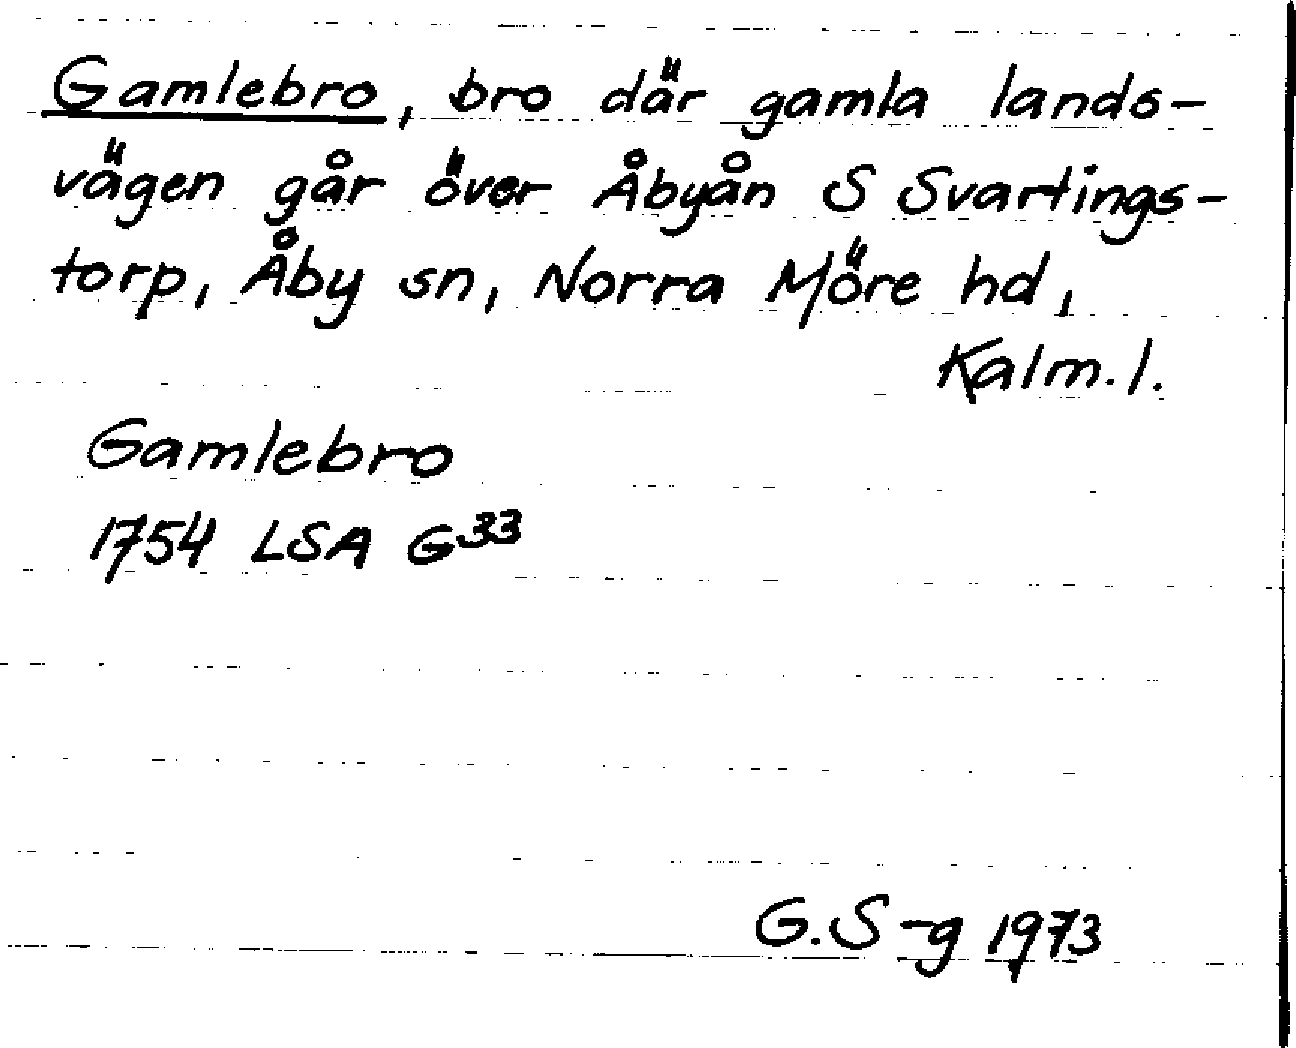 Gamlebro, bro där gamla lands-
vägen går över Åbyån S Svartings-
torp, Åby sn, Norra Möre hd,
Kalm. l.
Gamlebro
1754 LSA G33
G. S-g 1973